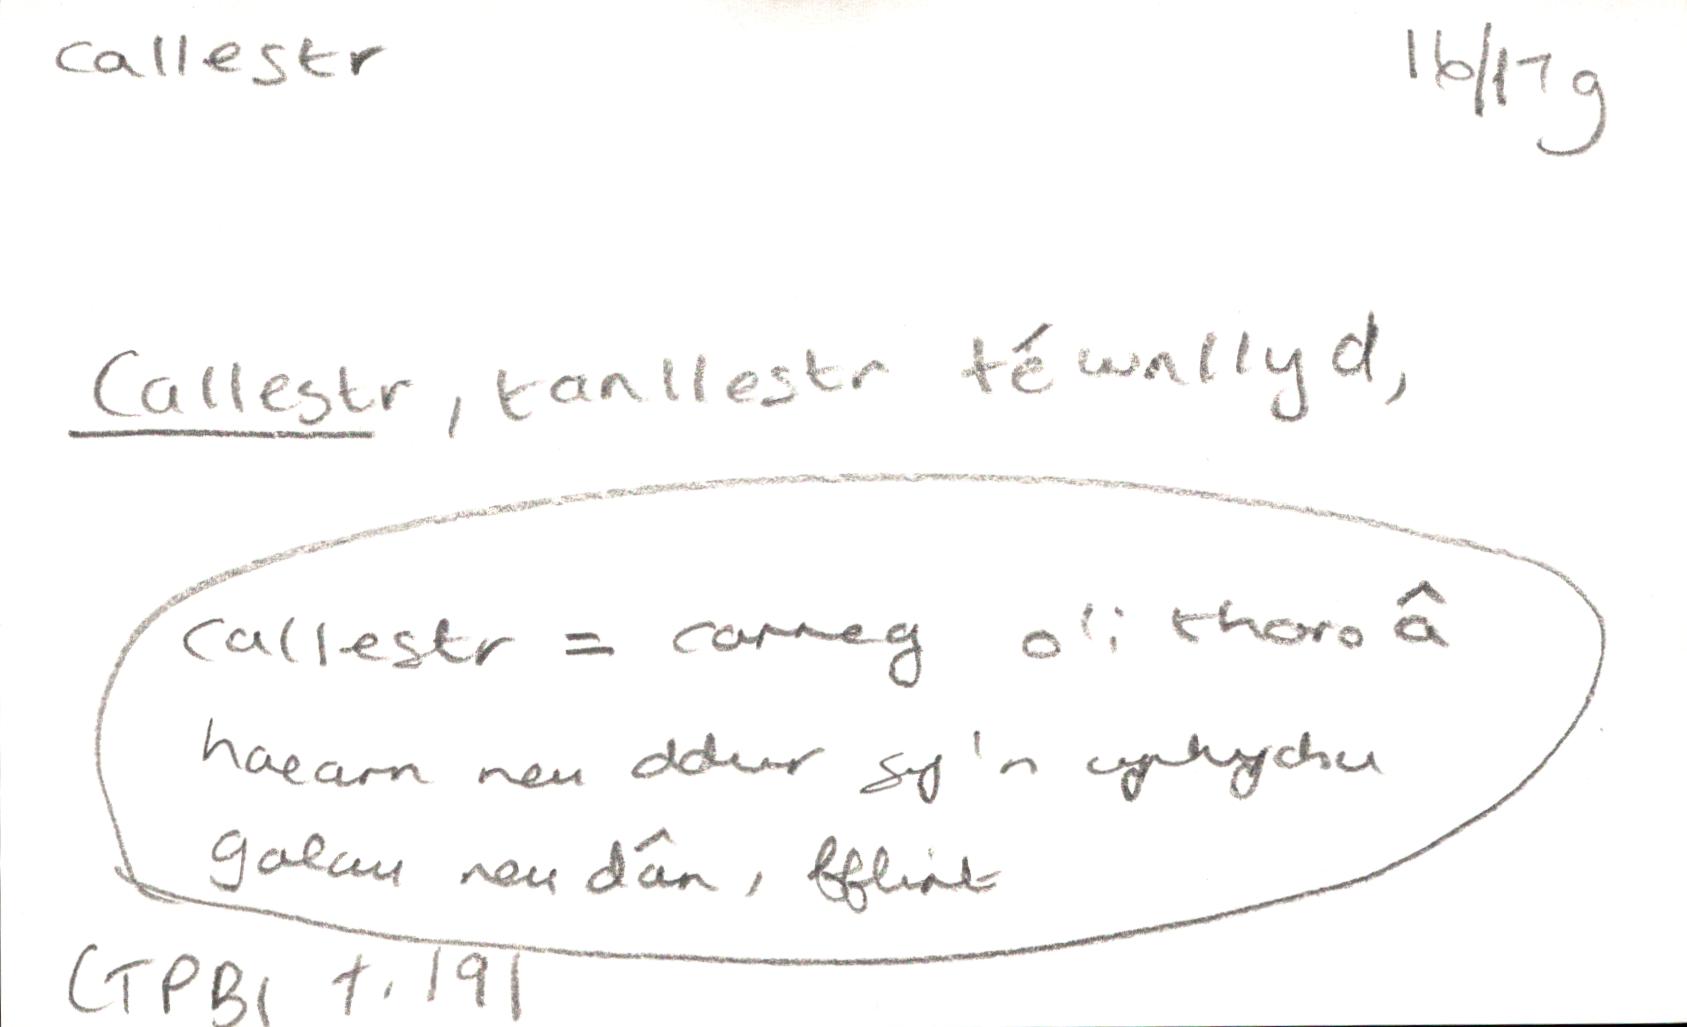 callestr 16/17g
Callestr, tanllestr téwnllyd,
callestr = carreg o'i tharo â
haearn neu ddur sy'n cynhyrchu
golau neu dân, fflint
CTPB1 t. 191